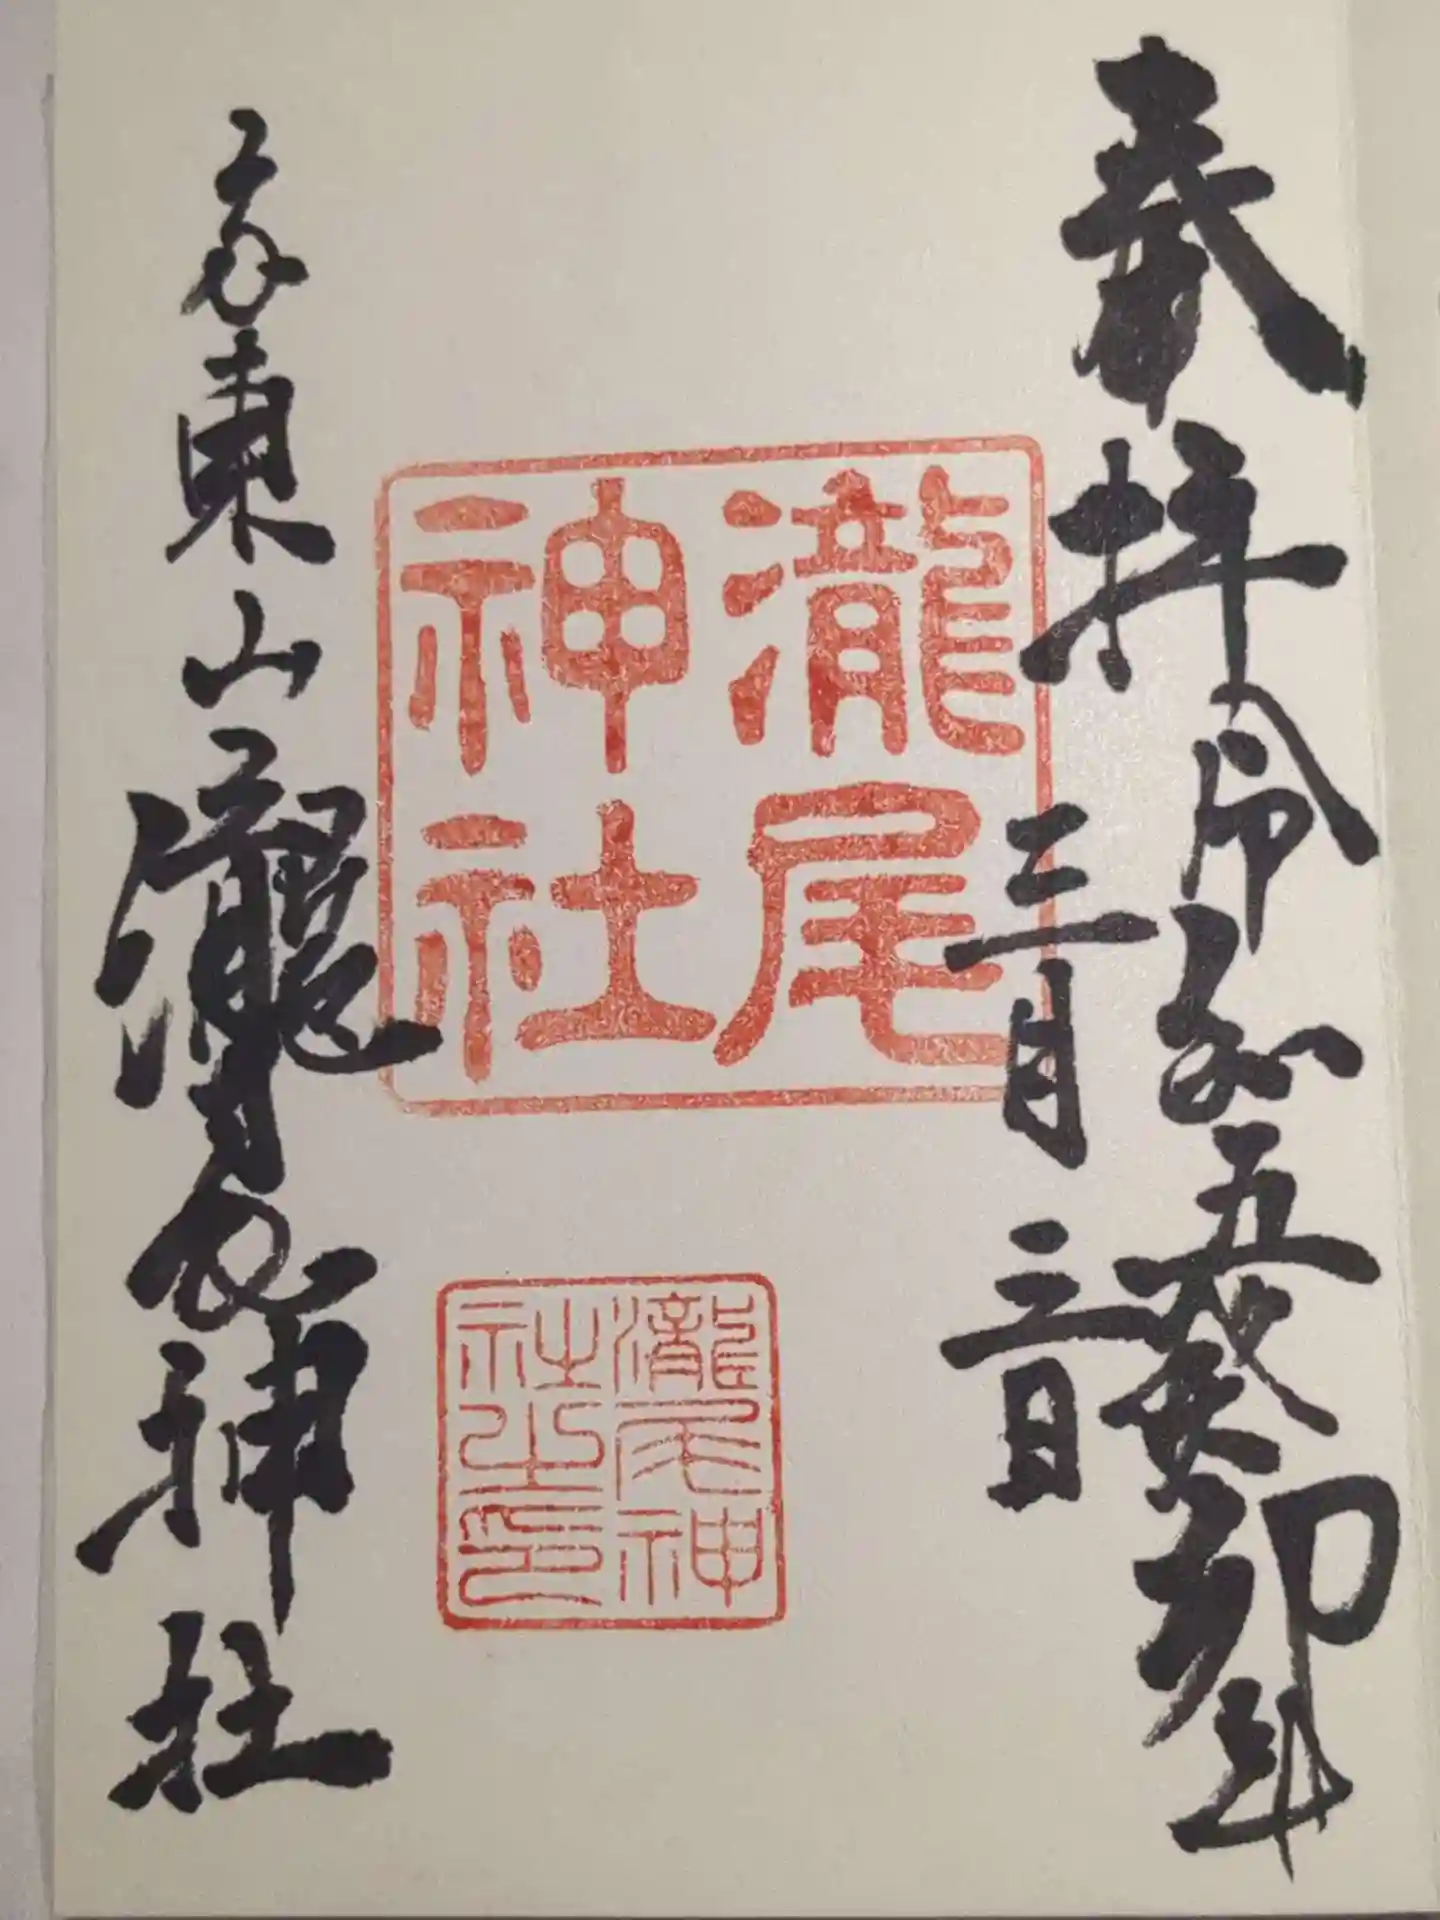 奉拝
令和五癸卯年
三月三日
瀧尾
神社
瀧尾神
社之印
京東山瀧尾神社